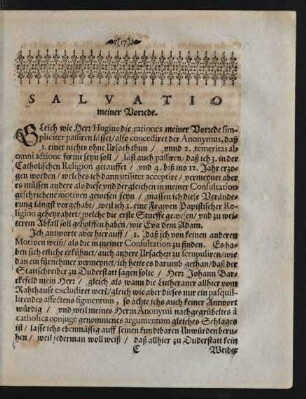 SALVATIO
meiner Vorrede.
Gleich wie Herr Hugius die rationes meiner Vorrede sim-
pliciter passiren lässet/ also concediret der Anonymus, daß
1. einer nichts ohne Ursach thun / unnd 2. temeritas ab
omni actione ferne seyn soll / last auch passiren/ daß ich 3. in der
Catholischen Religion getaufft / und 4. biß ins 12. Jahr erzo-
gen worden / welches ich danckbar accepire / vermeynet aber
es müssen andere als diese und dergleichen in meiner Consultation
geschriebene motiven gewesen seyn / massen ich diese Verände-
rung längst vorgehabt/ weil ich 1. eine Frawen Baptistischer Re-
ligion geheyrahtet/ welche die erste Stuffe gewesen/ und zu wei-
terem Abfall geholffen haben/ wie Eva dem Adam.
Ich antworte aber hier auff / 1. daß ich von keinen anderen
Motiven weiß/ als die in meiner Consultation zu finden. Es ha-
ben sich etliche erkühnet/ auch andere Ursachen zu
dan ein fürnehmer vermeynet/ ich hette es darumb gethan/ daß der
Stattschreiber zu Duderstatt sagen solte / Herr Johann Barc-
kefeld mein Herr / gleich als wann die Lutheraner alhier vom
Rahthause excludiret weren/ gleich wie aber dieses nur ein pasquil-
lirendes affectens figmentum, so achte ichs auch keiner Antwort
würdig / und weil meines Herrn Anonymi nachgegrübeltes à
catholica conjuge genommenes argumentum gleiches Schlages
ist / lasse ichs ebenmässig auff seinen Unwürden beru-
hen/ weil jederman woll weiß / daß allhier zu Duderstatt kein
C Weiber